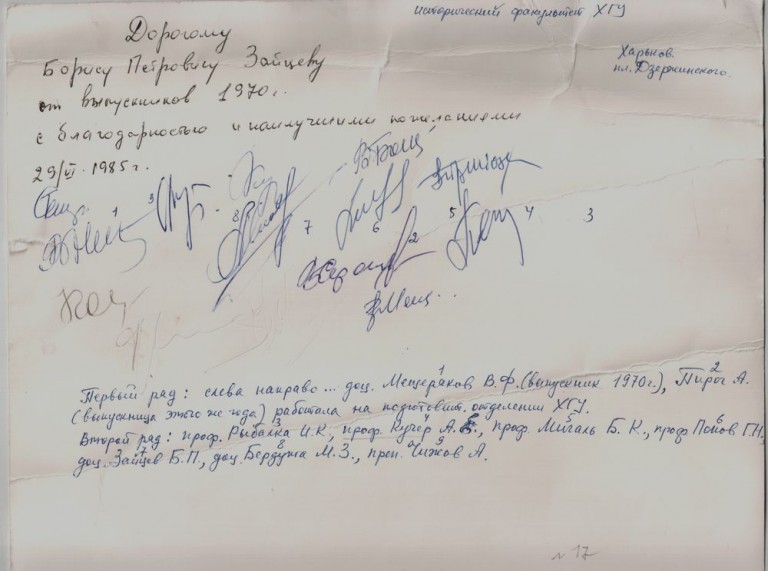 исторический факультет ХГУ
Харьков.
пл. Дзержинского.
Дорогому
Борису Петровичу Зайцеву
от выпускников 1970г.
с благодарностью и наилучшими пожеланиями
29/VI. 1985г.
1 9 8 7 6 2 5 4 3
Первый ряд: слева направо... доц. Мещеряков В.Ф. (выпускник 1970г.), Пирог А.
1 2
(выпускница этого же года) работала на подготовит. отделении ХГУ.
Второй ряд: проф. Рыбалка И.К., проф. Кучер А.Е., проф. Мигаль Б.К., проф. Попов Г.Н.,
3 4 5 6
доц. Зайцев Б.П., доц. Бердута М.З., преп. Чижов А.
7 8 9
№17